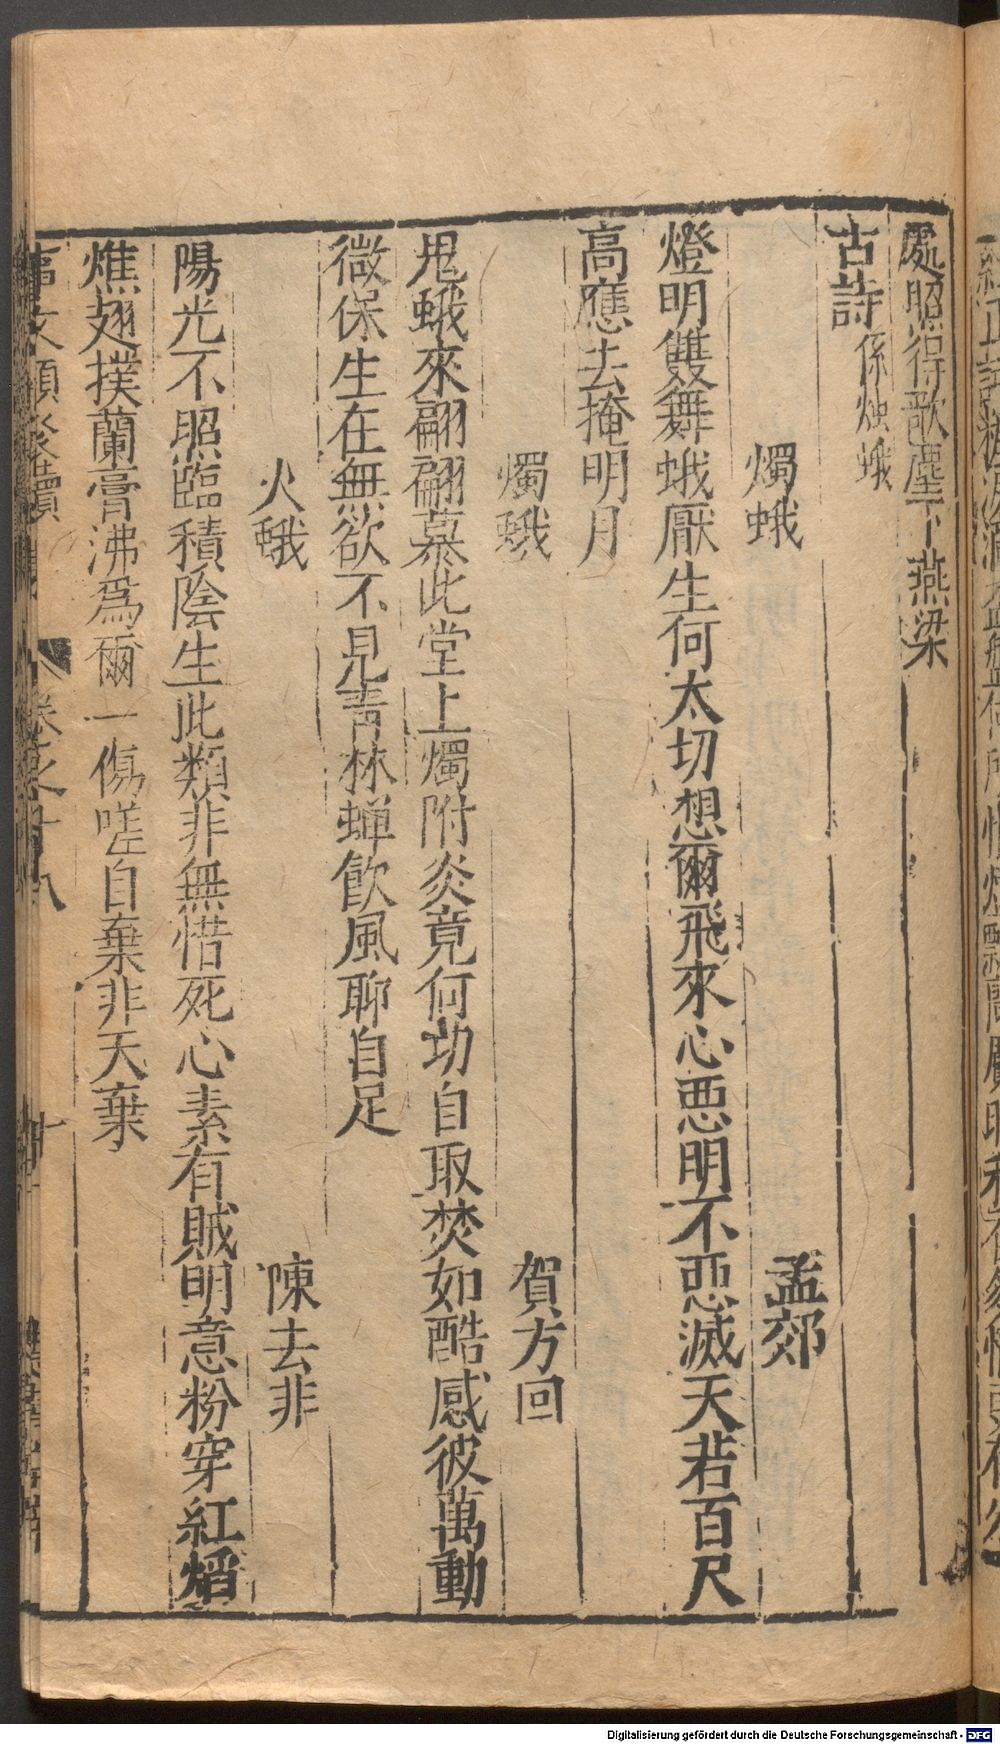 處照得歌塵下燕梁
古詩 係燭蛾
燭蛾 孟郊
燈明雙舞蛾厭生何太切想爾飛來心惡明不惡滅天若百尺
高應去掩明月
燭蛾 賀方回
鬼蛾來翩翩慕此堂上燭附炎竟何功自取焚如酷感彼萬動
微保生在無欲不見青林蟬飲風聊自足
火蛾 陳去非
陽光不照臨積陰生此類非無惜死心素有賊明意粉穿紅焰
燋翅撲蘭膏沸為爾一傷嗟自棄非天棄
事文類聚續集 卷之十八 十
Digitalisierung gefördert durch die Deutsche Forschungsgemeinschaft - DFG